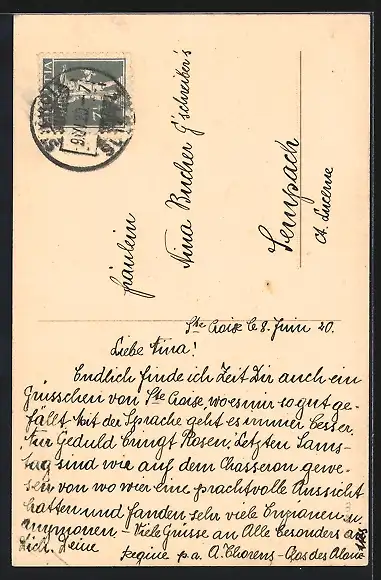 HELVETIA
Fräulein
Nina Bucher G'schreiber's
Sempach
Ct. Lucerne
Ste Croix le 8. Juin 20.
Liebe Nina!
Endlich finde ich Zeit Dir auch ein
Grüsschen von Ste Croix, wo es mir so gut ge-
fällt. Mit der Sprache geht es immer besser,
Nur Geduld bringt Rosen. Letzten Sams-
tag sind wir auf dem Chasseron gewe-
sen von wo wir eine prachtvolle Aussicht
hatten und fanden sehr viele Enzianen u.
Anymonen - Viele Grüsse an Alle besonders an
Dich. Deine
Regine p.a. A. Thorens - Clos des Alans